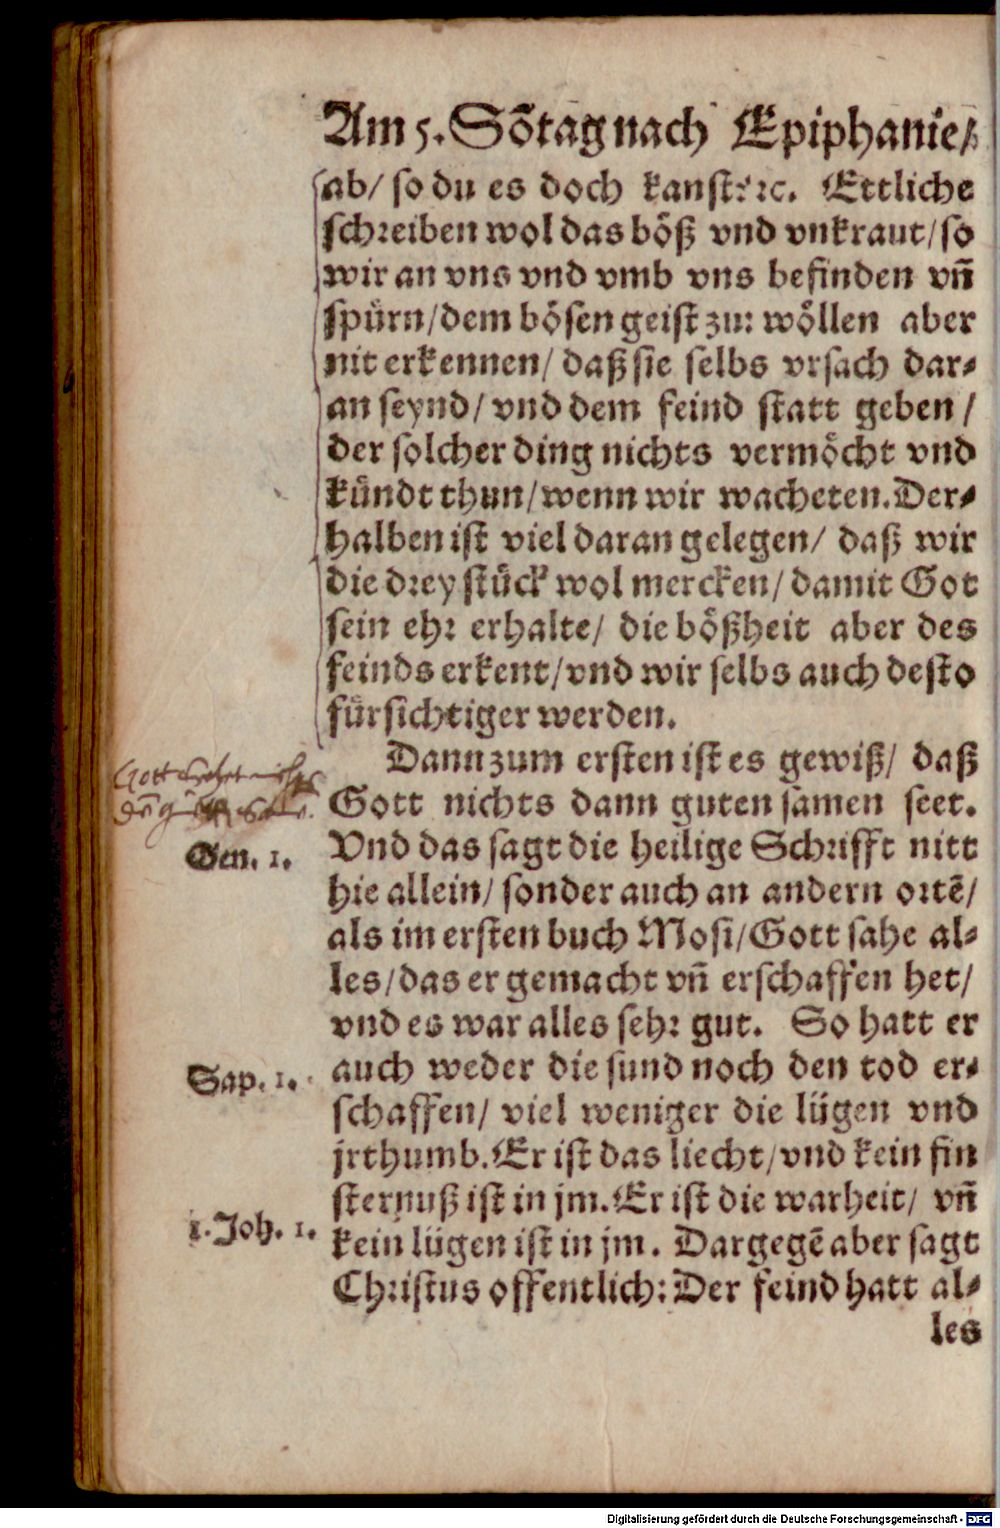 Am 5. Sõtag nach Epiphanie/
ab/ so du es doch kanst ꝛc. Ettliche
schreiben wol das böß vnd vnkraut/ so
wir an vns vnd vmb vns befinden vn̄
spürn/ dem bösen geist zu: wöllen aber
nit erkennen/ daß sie selbs vrsach dar⸗
an seynd/ vnd dem feind statt geben/
der solcher ding nichts vermöcht vnd
kündt thun/ wenn wir wacheten. Der⸗
halben ist viel daran gelegen/ daß wir
die drey stück wol mercken/ damit Got
sein ehr erhalte/ die bößheit aber des
feinds erkent/ vnd wir selbs auch desto
fürsichtiger werden.
Dann zum ersten ist es gewiß/ daß
Gott nichts dann guten samen seet.
Gott nichts
Gen. 1.
Vnd das sagt die heilige Schrifft nitt
hie allein/ sonder auch an andern ortē/
als im ersten buch Mosi/ Gott sahe al⸗
les/ das er gemacht vn̄ erschaffen het/
vnd es war alles sehr gut. So hatt er
Sap. 1.
auch weder die sund noch den tod er⸗
schaffen/ viel weniger die lügen vnd
jrthumb. Er ist das liecht/ vnd kein fin
sternuß ist in jm. Er ist die warheit/ vn̄
1. Joh. 1.
kein lügen ist in jm. Dargegē aber sagt
Christus offentlich: Der feind hatt al⸗
les
Digitalisierung gefördert durch die Deutsche Forschungsgemeinschaft - DFG